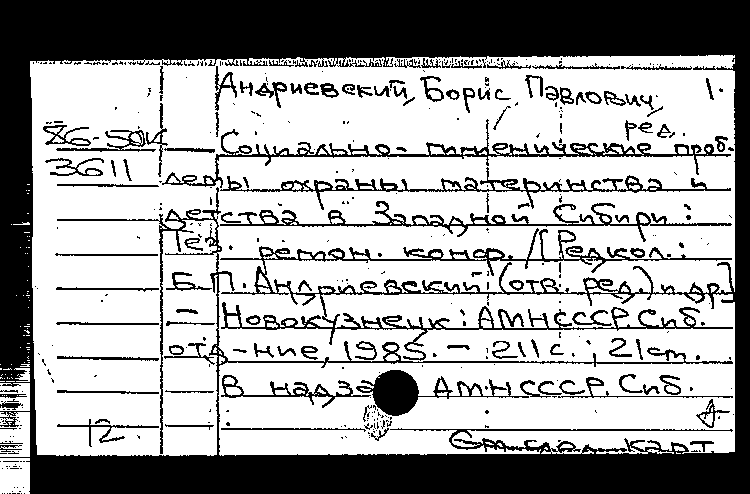 Андриевский, Борис Павлович, 1.
ред.
86-50к Социально-гигиенические проб-
3611 лемы охраны материнства и
детства в Западной Сибири:
Тез. регион. конф. / [Редкол.:
Б.П. Андриевский (отв. ред.) и др.]
- Новокузнецк: АМН СССР. Сиб.
отд-ние, 1985. - 211 с.; 21 см.
В надзаг. АМН СССР. Сиб.
12